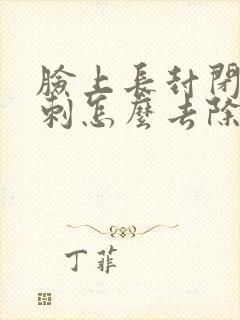 臉上長封閉
刺怎麼去除
丁菲